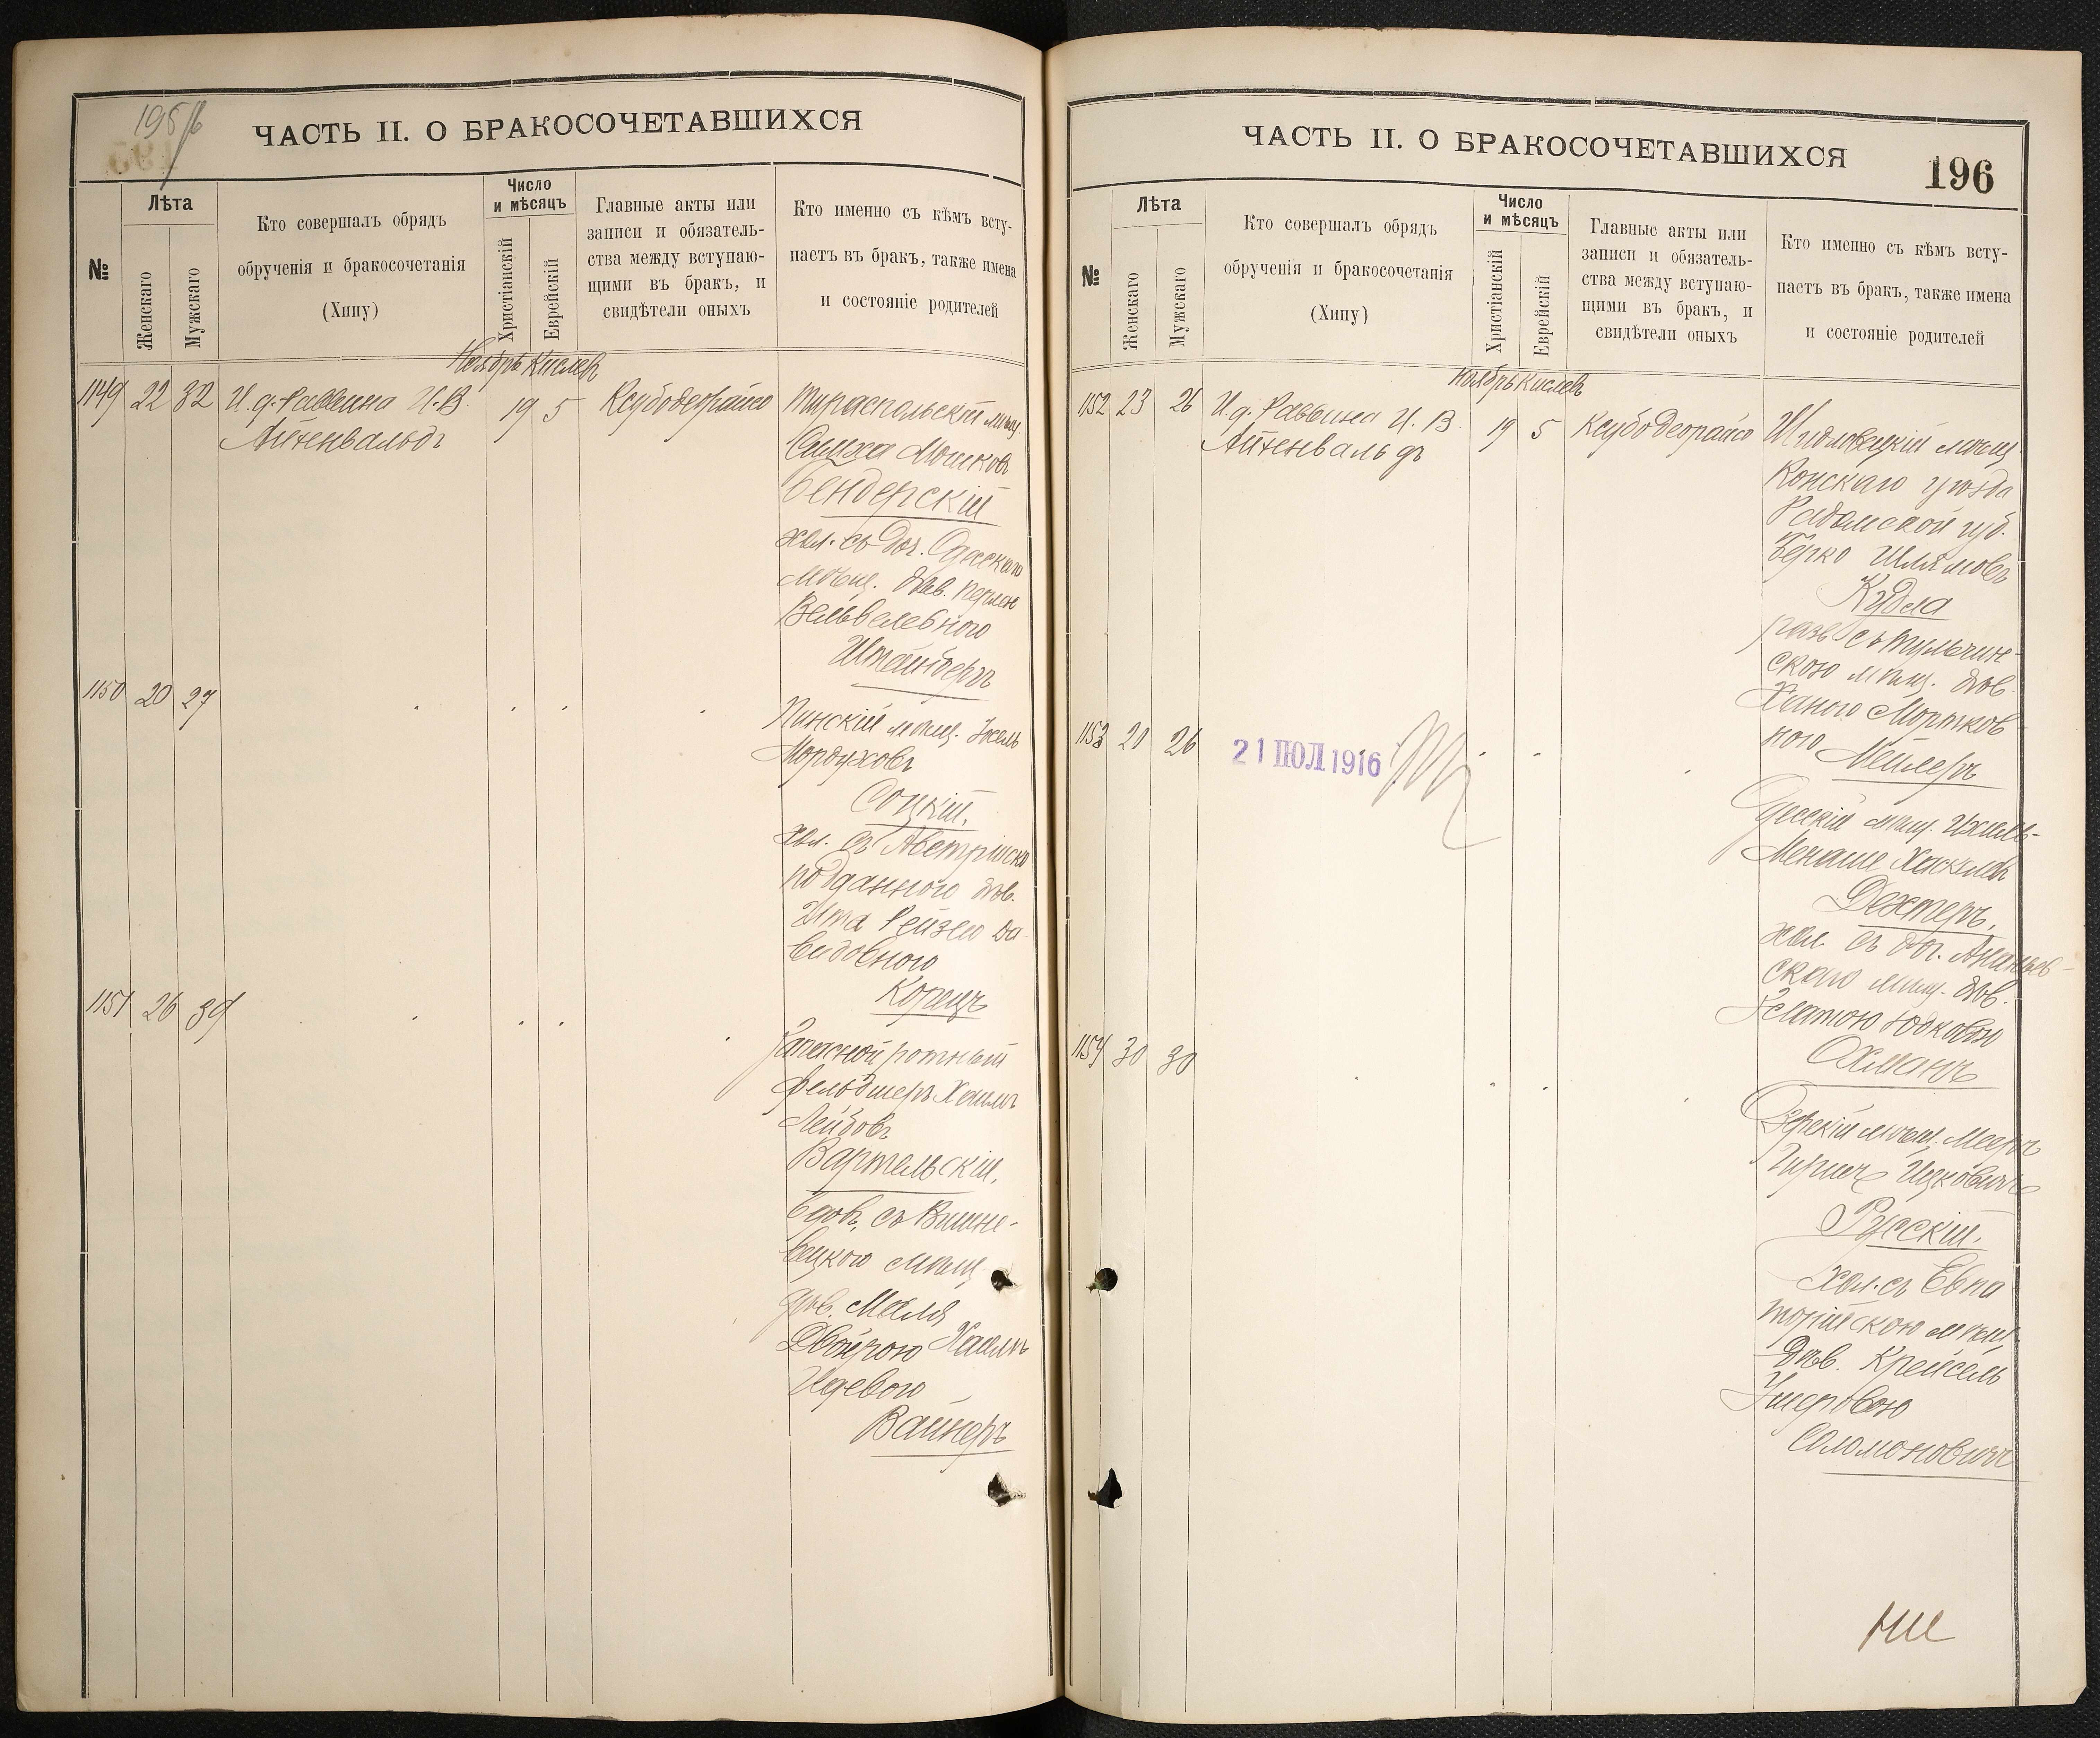 195/б
ЧАСТЬ II. О БРАКОСОЧЕТАВШИХСЯ
№
Лѣта
Женскаго
Мужскаго
Кто совершалъ обрядъ
обрученія и бракосочетанія
(Хипу)
Число
и мѣсяцъ
Христіанскій
Еврейскій
Главные акты или
записи и обязатель-
ства между вступаю-
щими въ бракъ, и
свидѣтели оныхъ
Кто именно съ кѣмъ всту-
паетъ въ бракъ, также имена
и состояніе родителей
Ноябрь Кислев
1149 22 32 И. д. Раввина И. В. 19 5 Ксубодеорайсо
Айхенвальдъ
Тираспольскій мѣщ.
Симха Мошковъ
Бендерскій
хол. съ доч. Одесскаго
мѣщ. дѣв. Перлею
Вельвелевною
Штейнбергъ
1150 20 27
Пинскій мѣщ.
Мордуховъ
Соцкій.
хол. съ Австрійско
подданною дѣв.
Ита Рейзею Да-
видовною
Корецъ
1151 26 39
Запасной ротный
фельдшеръ Хаимъ
Лейбовъ
Вартельскій.
вдов. съ Вишне-
вецкою мѣщ.
дѣв. Маля
Двойрою Хаимъ
Идевою
Вайнеръ
ЧАСТЬ II. О БРАКОСОЧЕТАВШИХСЯ
196
№
Лѣта
Женскаго
Мужскаго
Кто совершалъ обрядъ
обрученія и бракосочетанія
(Хипу)
Число
и мѣсяцъ
Христіанскій
Еврейскій
Главные акты или
записи и обязатель-
ства между вступаю-
щими въ бракъ, и
свидѣтели оныхъ
Кто именно съ кѣмъ всту-
паетъ въ бракъ, также имена
и состояніе родителей
Ноябрь Кислев
1152 23 26 И. д. Раввина И. В. 19 5 Ксубодеорайсо
Айхенвальдъ
Шидловецкій мѣщ.
Конскаго уѣзда
Радомской губ.
Берко Шлямовъ
Кудла
разв. съ Тульчин-
скою мѣщ. дѣв.
Ханою Мортков-
ною Мейлеръ
1153 20 26
21 ІЮЛ 1916
Одесскій мѣщ. Ихиль-
Менаше Хаскелев
Дехтеръ,
хол. съ доч. Ананьев-
скаго мѣщ. дѣв.
Златою Юдковою
Охманъ
1154 30 30
Озерскій мѣщ. Мееръ
Гиршъ Ицковичъ
Русскій.
хол. съ Евпа
торійскою мѣщ.
дѣв. Крейсель
Ушеровою
Соломоновичъ